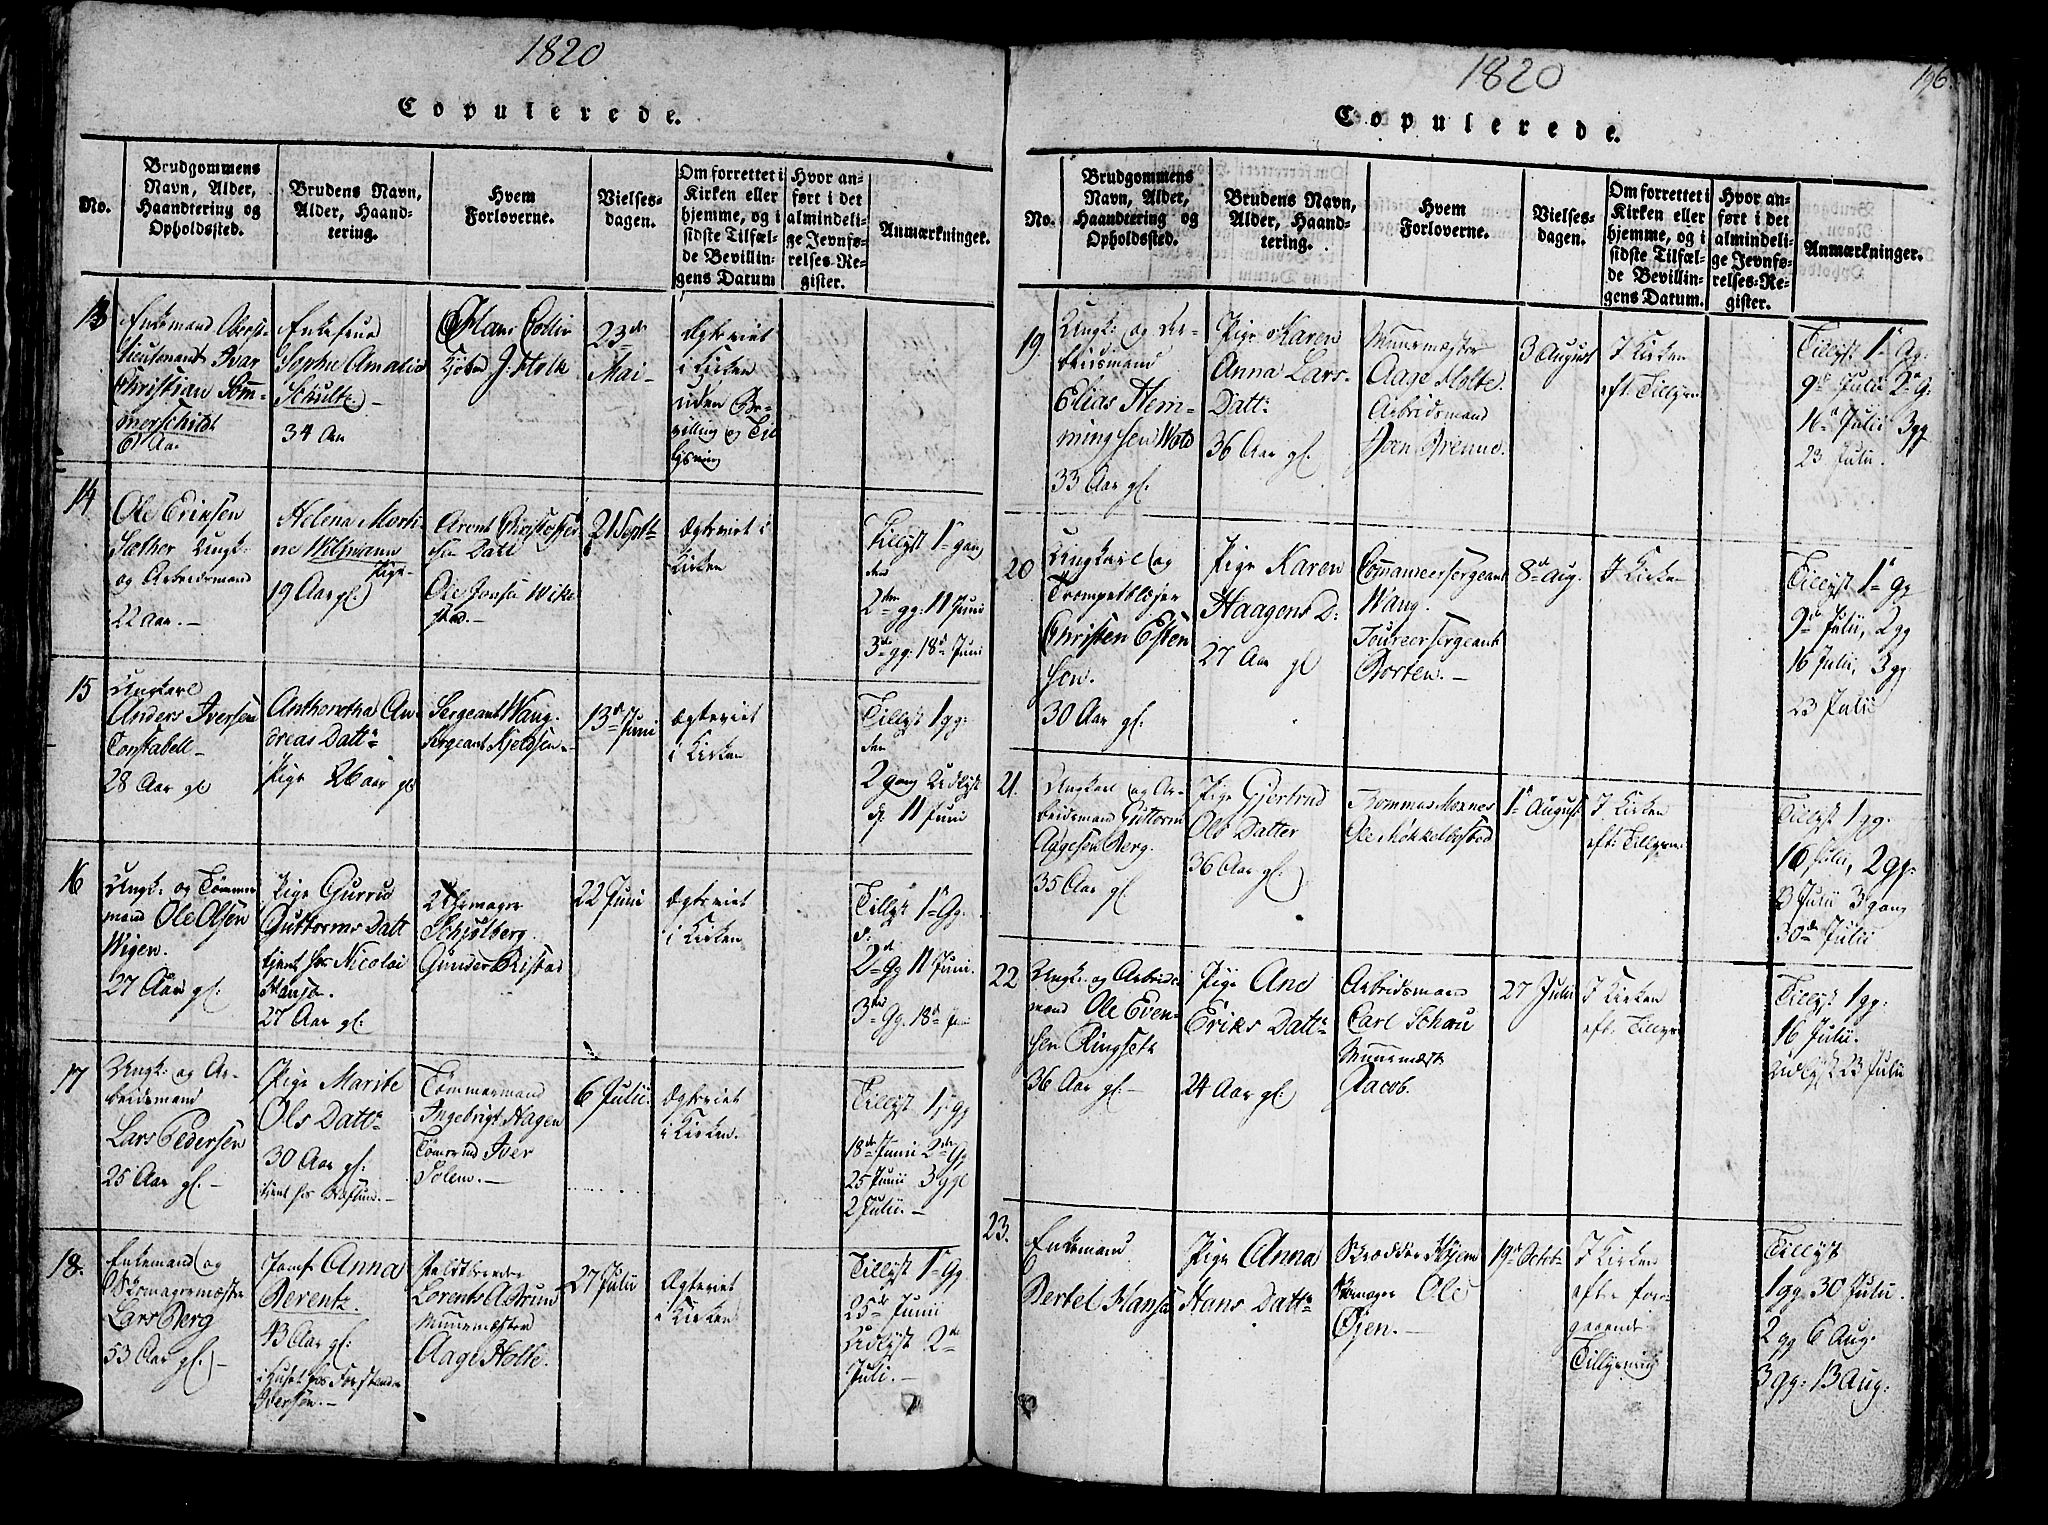 1820
Copulerede.
No.
Brudgommens
Navn, Alder,
Haandtering og
Opholdssted.
Brudens Navn,
Alder, Haand-
tering.
Hvem
Forloverne.
Vielses-
dagen.
Om forrettet i
Kirken eller
hjemme, og i
sidste Tilfæl-
de Bevillin-
gens Datum
Hvor an-
ført i det
almindeli-
ge Jevnfø-
relses-Re-
gister.
Anmærkninger.
13
Enkemand Oberst-
lieutenant Ivar
Christian Sōm-
merschildt
61 Aar.
Enkefrue
Sophie Amalia
Schultz
34 Aar
Hans Collin
J. Holk
23de
Mai -
Ægteviet
i Kirken
uden Be-
villing og Til-
lysning
14
Ole Eriksen
Sæther Ungk:
og Arbeidsmand
22 Aar. -
Helena Marti-
ne
Pige
19 Aar gl.
Aront Christoffer-
sen Dall
Ole Jonsen Wik-
stad. -
21 Septb
Ægteviet i
Kirken
Tillyst 1ste gang
den
2den gg: 11 Juni
3de gg: 18de Juni
15
Ungkarl
Anders Iversen
Constabell -
28 Aar gl.
Anthonetha An-
dreas Dattr
Pige 26 aar gl.
Sergeant Wang.
Sergeant Kjeldsen. -
13de Juni
Ægteviet
i Kirken
Tillyst 1 gg:
den
2 gang Udlyst
d. 11 Juni
16
Ungk: og Tømmer
mand Ole Olsen
Wigen.
27 Aar gl.
Pige Gurrud
Guttorms Datt
tjent hos Nicolai
Hansen.
27 Aar gl.
Schjølberg.
Gunder Ristad
22 Juni
Ægteviet
i Kirken
Tillyst 1ste Gg.
d:
2de Gg 11 Juni.
3de Gg. 18de Juni
17
Ungk: og Ar-
beidsmand
Lars Pedersen
25 Aar gl. -
Pige Marite
Ols Dattr
30 Aar gl:
Tømmermand
Ingebrigt Hagen
Tømrmd Iver
Solem. -
6 Julii.
Ægteviet
i Kirken.
Tillyst 1ste Gg
18de Junii 2de Gg
25 Junii 3 gg
2 Julii. -
18.
Enkemand og
Skomagermester
Lars Berg
53 Aar gl. -
Jomf. Anna
Berentz.
43 Aar gl:
i Huset hos Forstander
Iversen. -
Feldtbereder
Lorents A. Bruun
Muurmester
Aage Holte.
27 Julii
Ægteviet
i Kirken
Tillyst 1ste Gg
25de Junii
Udlyst 2den
Juli. -
1820
196.
Copulerede.
No.
Brudgommens
Navn, Alder,
Haandtering og
Opholdssted.
Brudens Navn,
Alder, Haand-
tering.
Hvem
Forloverne.
Vielses-
dagen.
Om forrettet i
Kirken eller
hjemme, og i
sidste Tilfæl-
de Bevillin-
gens Datum.
Hvor an-
ført i det
almindeli-
ge Jevnfø-
relses-Re-
gister.
Anmærkninger.
19.
Ungk: og Ar-
beidsmand
Elias Hem-
mingsen Wold
33 Aar gl.
Pige Karen
Anna Lars-
Dattr
36 Aar gl.
Muurmester
Aage Holte.
Arbeidsmand
Joen Brenne.
3 August
I Kirken
eft. Tillysn
Tillyst 1ste Gg:
9de Julii 2de G:
16de Julii 3 gg
23 Julii.
20
Ungkarl og
Trompetblæser
Christen Esten-
sen.
30 Aar gl.
Pige Karen
Haagens D:
27 Aar gl
Comaneersergeant
Wang.
Foureersergeant
Borten. -
8de Aug.
I Kirken
Tillyst 1ste Gg
9de Julii, 2 gg
16 Julii, 3 gg
23 Julii
21.
Ungkarl og Ar-
beidsmand Guttorm
Aagesen Berg.
35 Aar gl.
Pige Gjertrud
Ols Datter
36 Aar gl.
Thommas Moxnes
Ole Mikkelbostad
1ste August
I Kirken
eft. Tillysn
Tillyst 1 gg:
16 Julii, 2 gg:
23 Julii 3 gang
30de Julii
22
Ungk: og Arbeids-
mand Ole Even-
sen Ringseth
36 Aar gl. -
Pige Ane
Eriks Dattr
24 Aar gl.
Arbeidsmand
Carl Schou
Muurmestr
Jacob.
27 Julii
I Kirken
eft. Tillysn
Tillyst 1 gg:
16 Julii.
Udlyst 23 Julii
23.
Enkemand
Bertel Hansen
Pige Anna
Hans Dattr
Ole
Øjen. -
19de Octob:
I Kirken
efter for-
gaaende
Tillysning
Tillyst
1 gg. 30 Julii.
2 gg 6 Aug:
3 gg: 13 Aug: